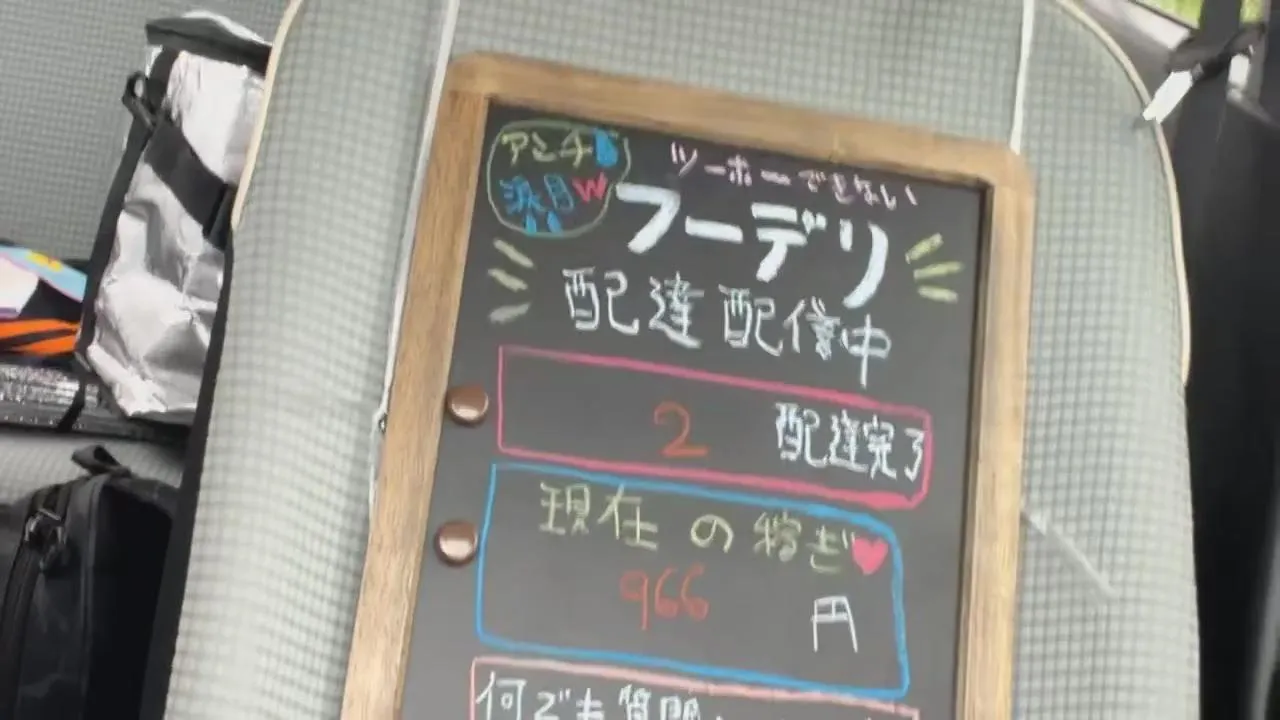 アンチ
涙目W
ツーホーできない
フーデリ
配達配信中
2 配達完了
現在の稼ぎ
966 円
何でも質問